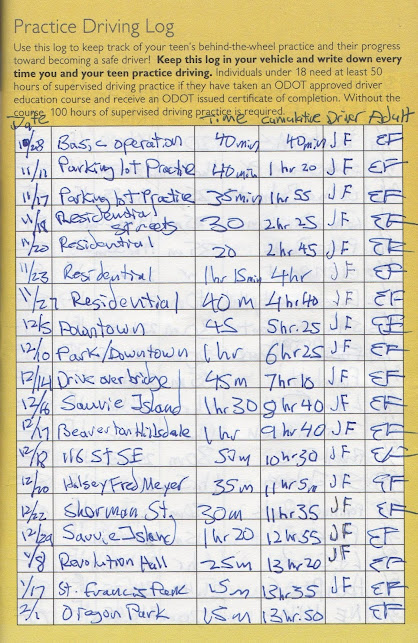 Practice Driving Log
Use this log to keep track of your teen's behind-the-wheel practice and their progress
toward becoming a safe driver! Keep this log in your vehicle and write down every
time you and your teen practice driving. Individuals under 18 need at least 50
hours of supervised driving practice if they have taken an ODOT approved driver
education course and receive an ODOT issued certificate of completion. Without the
course, 100 hours of supervised driving practice is required.
Date Time Cumulative Driver Adult
10/28 Basic operation 40min 40min JF EF
11/11 Parking lot Practice 40min 1hr 20 JF EF
11/17 Parking lot Practice 35min 1hr 55 JF EF
11/18 Residential streets 30 2hr 25 JF EF
11/20 Residential 20 2hr 45 JF EF
11/23 Residential 1hr 15min 4hr JF EF
11/27 Residential 40m 4hr40 JF EF
12/5 Downtown 45 5hr.25 JF EF
12/10 Park/Downtown 1hr 6hr25 JF EF
12/14 Drive over bridge 45m 7hr10 JF EF
12/16 Sauvie Island 1hr30 8hr40 JF EF
12/17 Beaverton Hillsdale 1hr 9hr40 JF EF
12/18 116 St SE 50m 10hr30 JF EF
12/20 Halsey Fred Meyer 35m JF EF
12/22 Sherman St. 30m 11hr35 JF EF
12/29 Sauvie Island 1hr20 12hr55 JF EF
1/8 Revolution Hall 25m 13hr20 JF EF
1/17 St. Francis Park 15m 13hr35 JF EF
2/1 Oregon Park 15m 13hr.50 JF EF